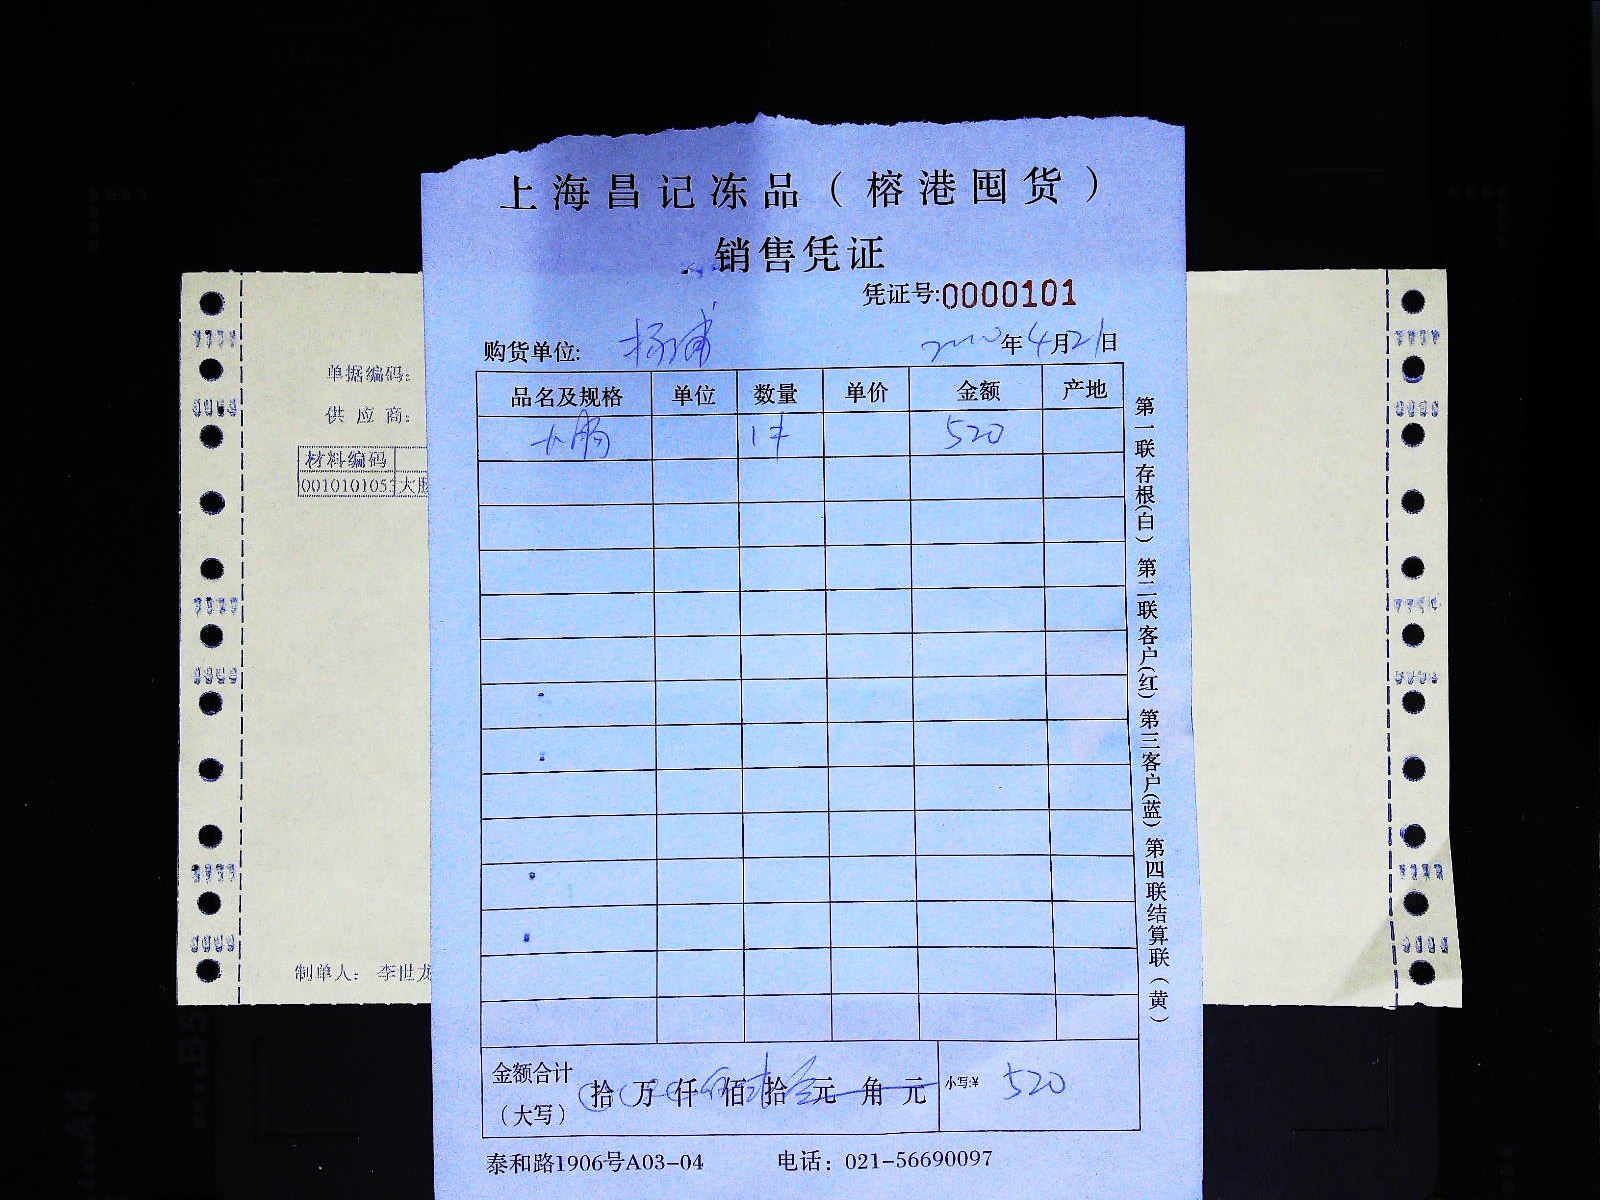 上海昌记冻品（榕港囤货）
销售凭证
凭证号:0000101
购货单位: 杨浦 年4月21日
品名及规格 单位 数量 单价 金额 产地
大肠 1件 520
第一联存根(白) 第二联客户(红) 第三客户(蓝) 第四联结算联(黄)
金额合计
（大写）
拾 万 仟 佰 拾 元 角 元
小写:¥ 520
泰和路1906号A03-04 电话：021-56690097
单据编码:
供 应 商:
材料编码
0010101053 大肠
制单人: 李世龙